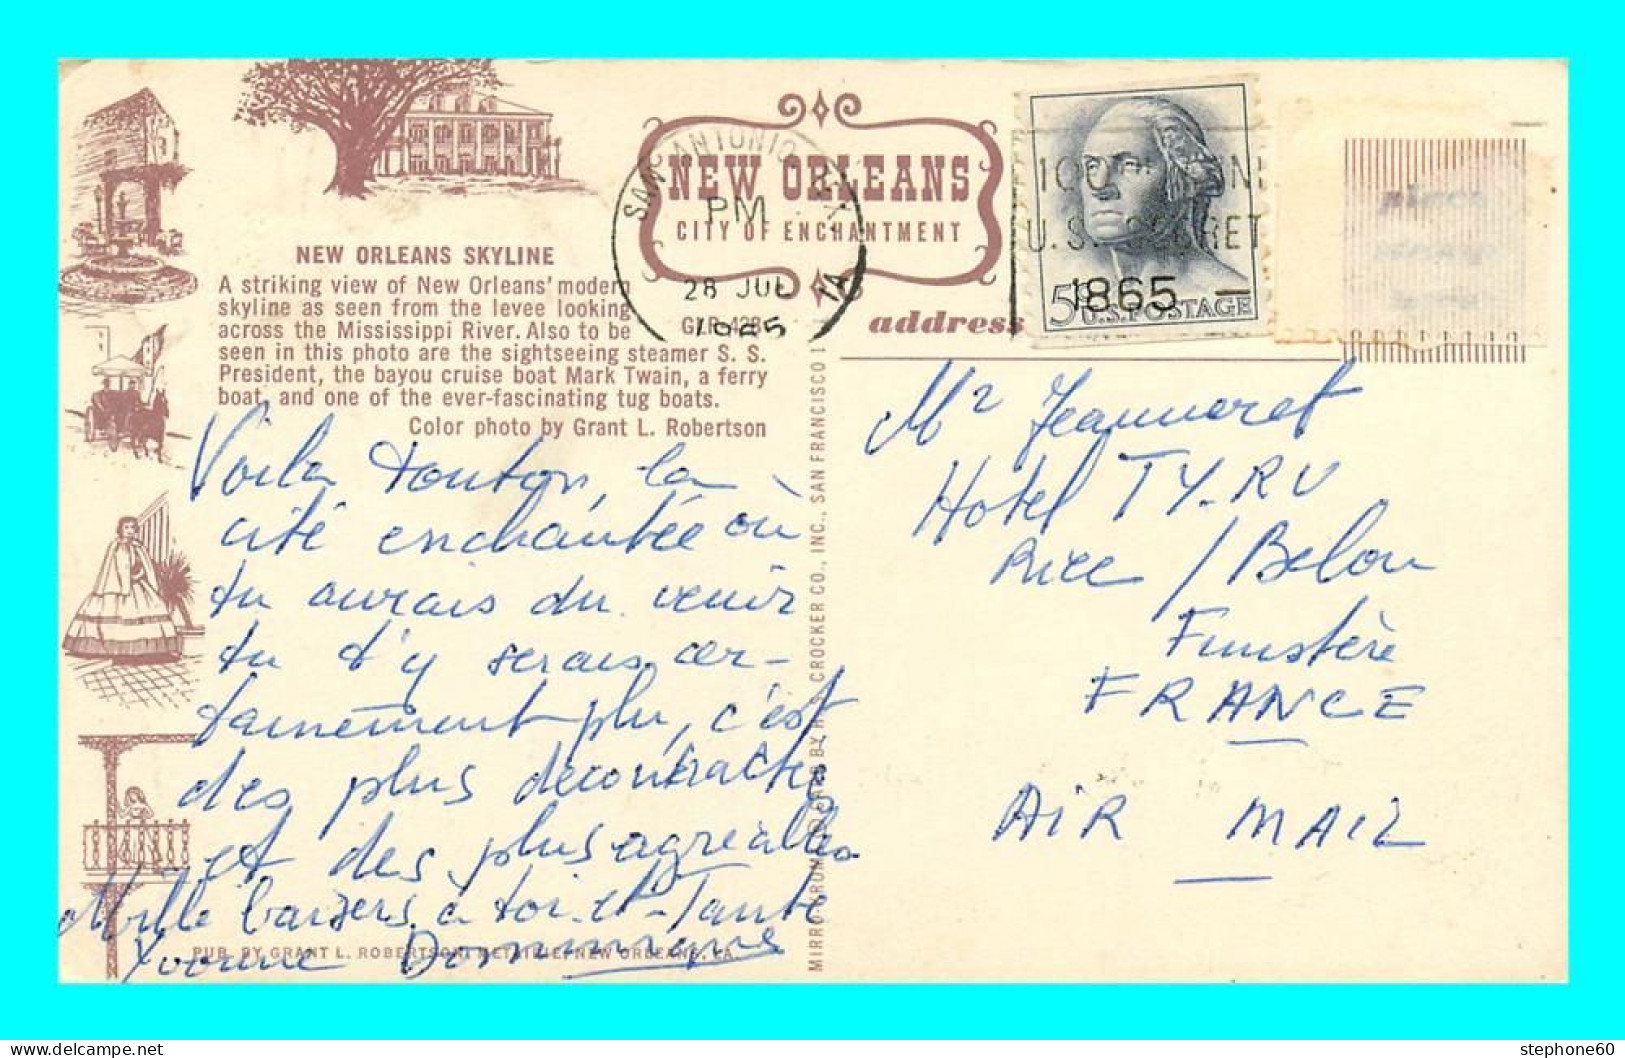 NEW ORLEANS
CITY OF ENCHANTMENT
NEW ORLEANS SKYLINE
A striking view of New Orleans' modern
skyline as seen from the levee looking
across the Mississippi River. Also to be
seen in this photo are the sightseeing steamer S. S.
President, the bayou cruise boat Mark Twain, a ferry
boat, and one of the ever-fascinating tug boats.
Color photo by Grant L. Robertson
Voila tonton, la
cité enchantée où
tu aurais du venir
tu t'y serais cer-
tainement plu, c'est
des plus décontractés
et des plus agréables
Mille baisers à toi et Tante
Yvonne Dominique
PUB. BY GRANT L. ROBERTSON, METAIRIE, NEW ORLEANS, LA.
SAN ANTONIO
PM
28 JUL
1965
1865
U.S. SECRET
5¢ U.S. POSTAGE
place
postage
address
Mr Jeanneret
Hotel TY-RU
Riec / Belon
Finistère
FRANCE
AIR MAIL
CROCKER CO., INC., SAN FRANCISCO 1
stephone60